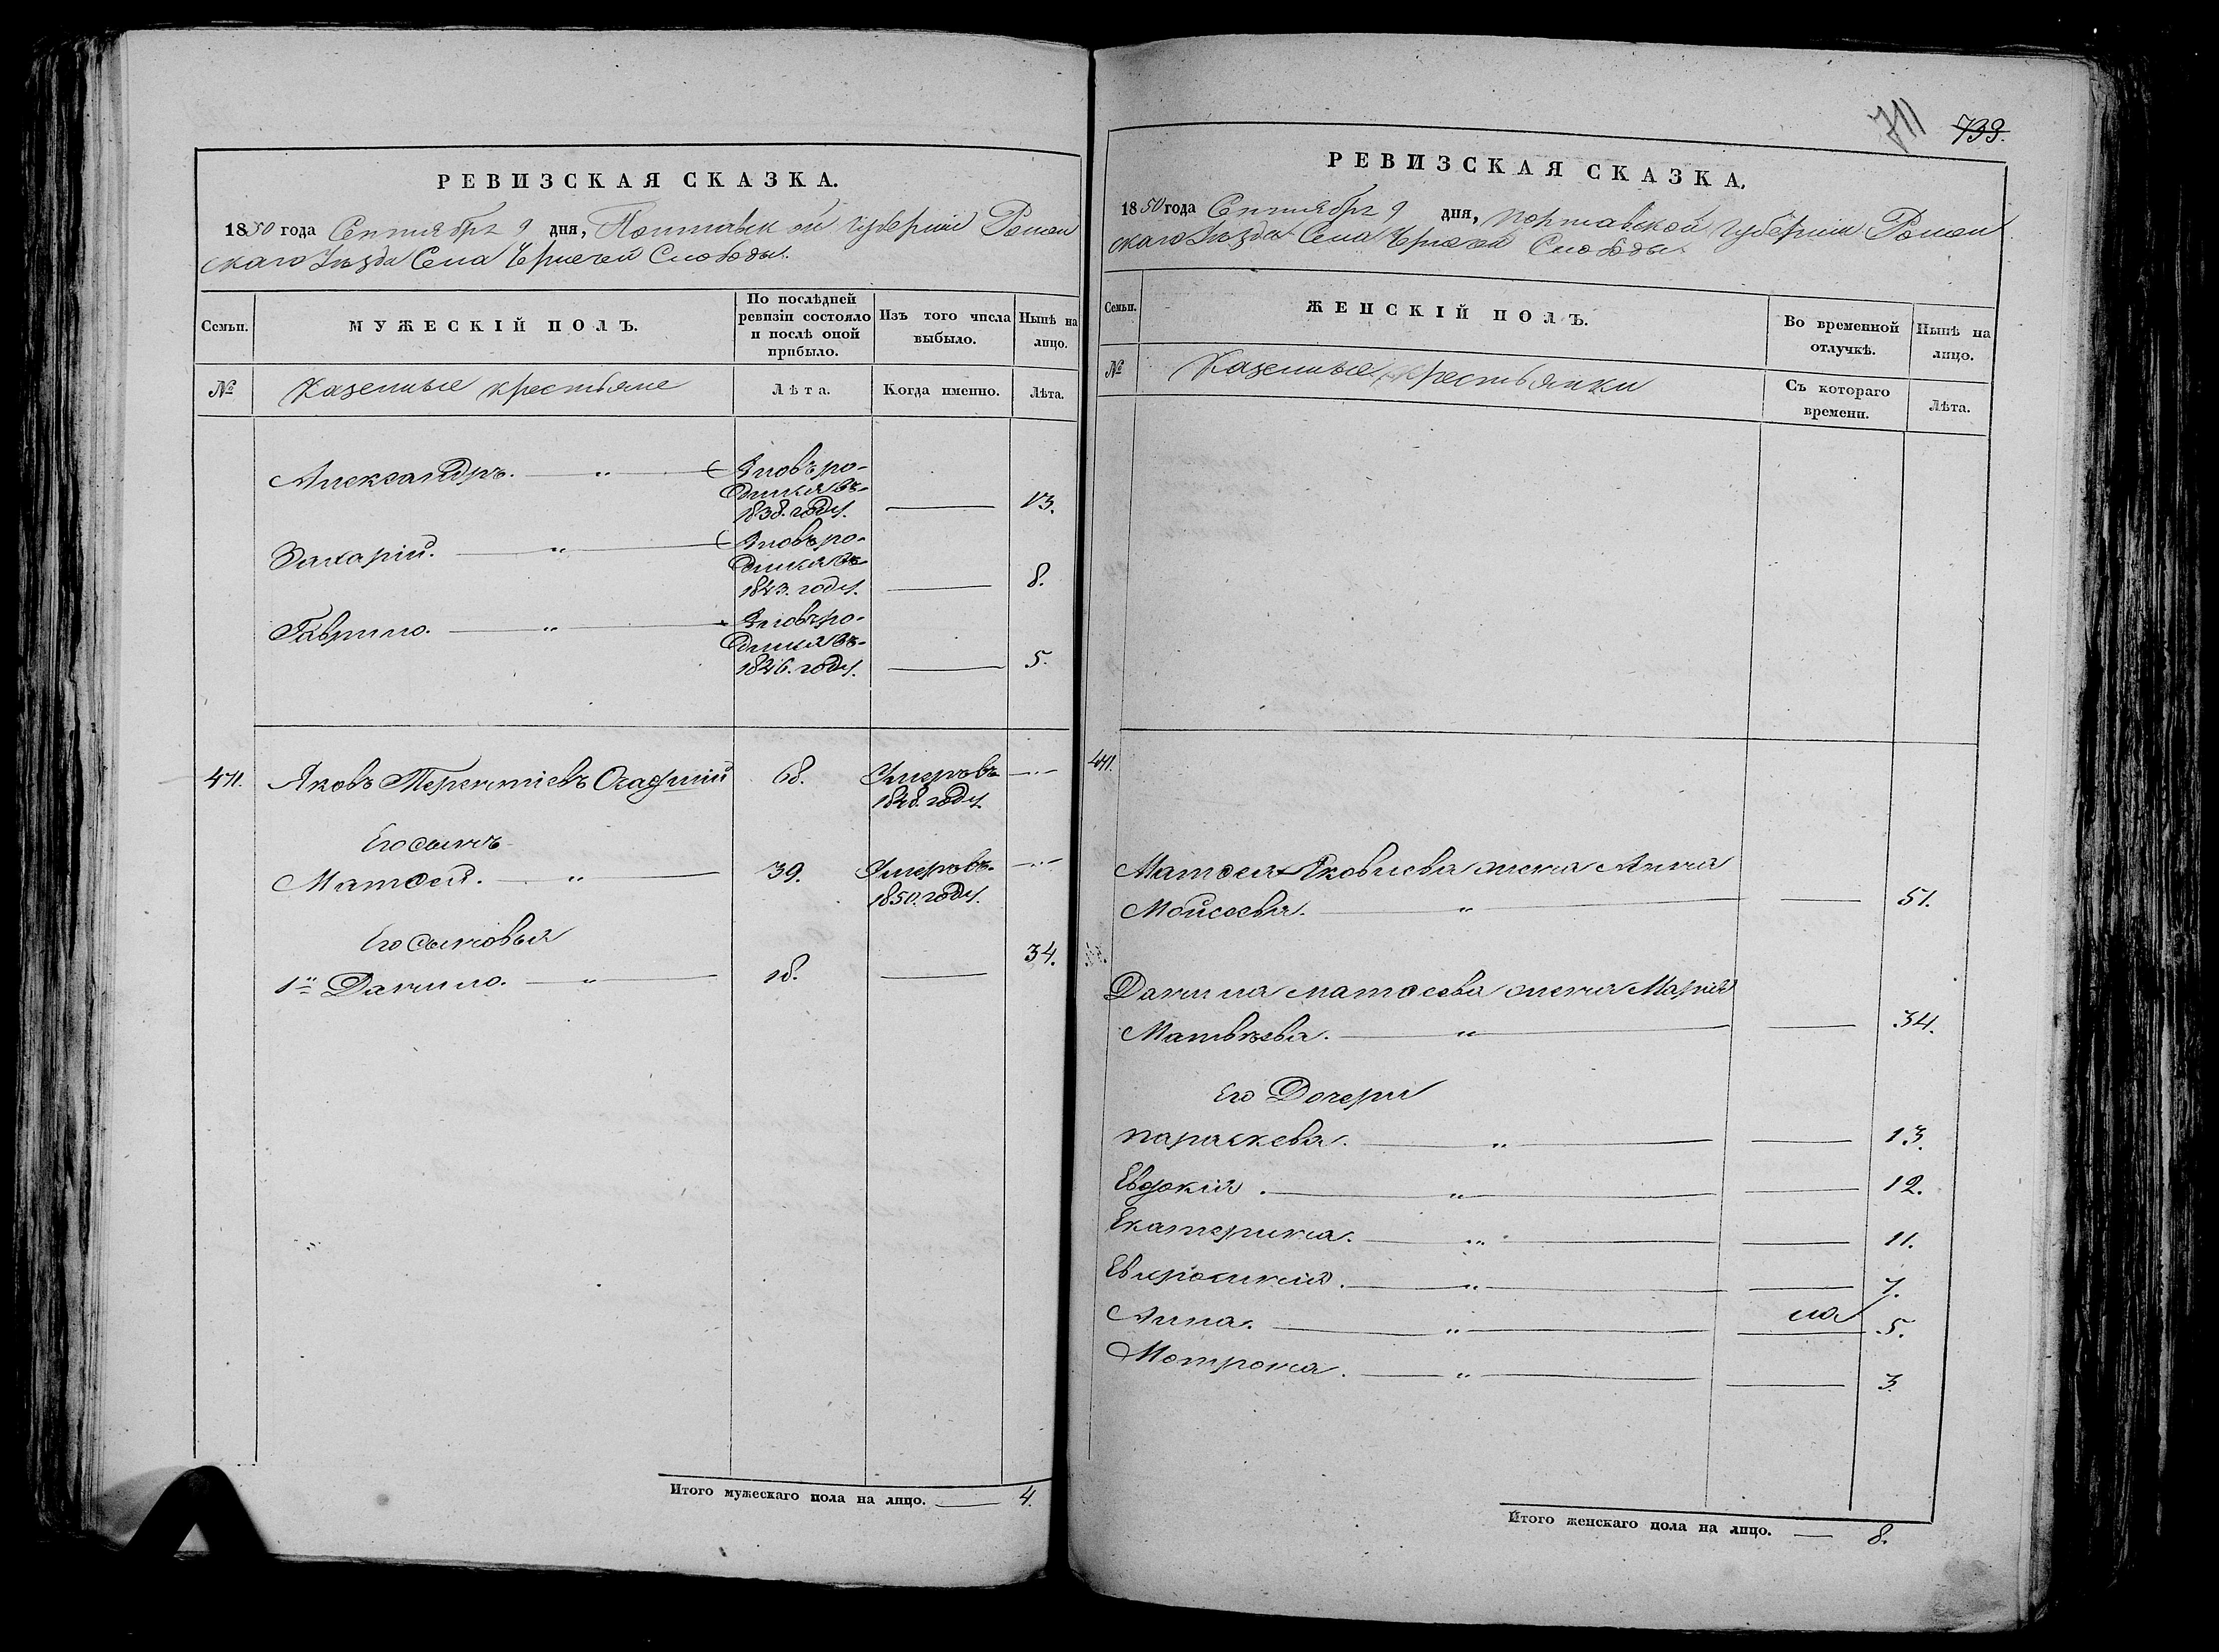 РЕВИЗСКАЯ СКАЗКА.
1850 года Сентября 9 дня, Полтавской губерніи Ромен
скаго Уѣзда Села Чернечей Слободы.
Семьи.
МУЖЕСКІЙ ПОЛЪ.
По послѣдней
ревизіи состояло
и послѣ оной
прибыло.
Изъ того числа
выбыло.
Нынѣ на
лицо.
№
Казенные крестьяне
Лѣта.
Когда именно.
Лѣта.
Александръ. — " — Вновь ро-
дился въ
1838. году. — 13.
Захарій. — " — Вновь ро-
дился въ
1843. году. — 8.
Гаврило. — " — Вновь ро-
дился въ
1846. году. — 5.
471. Яковъ Терентіевъ 68. Умеръ въ
1848. году.
Его сынъ
Матѳей. — " — 39. Умеръ въ
1850. году.
Его сыновья
1й Данило. — " — 18. — 34.
Итого мужескаго пола на лицо. — 4.
711 739.
РЕВИЗСКАЯ СКАЗКА.
1850 года Сентября 9 дня, Полтавской губерніи Ромен
скаго Уѣзда Села Чернечей Слободы.
Семьи.
ЖЕНСКІЙ ПОЛЪ.
Во временной
отлучкѣ.
Нынѣ на
лицо.
№
Казенные крестьянки
Съ котораго
времени.
Лѣта.
471.
Матѳея Яковлева жена Анна
Мойсеева. — " — 51.
Данила Матѳеева жена Марія
Матвѣева. — " — 34.
Его Дочери
Параскева. — " — 13.
Евдокія. — " — 12.
Екатерина. — " — 11.
Евфросинія. — " — 7.
Анна. — " — 5.
Мотрона. — " — 3.
Итого женскаго пола на лицо. — 8.